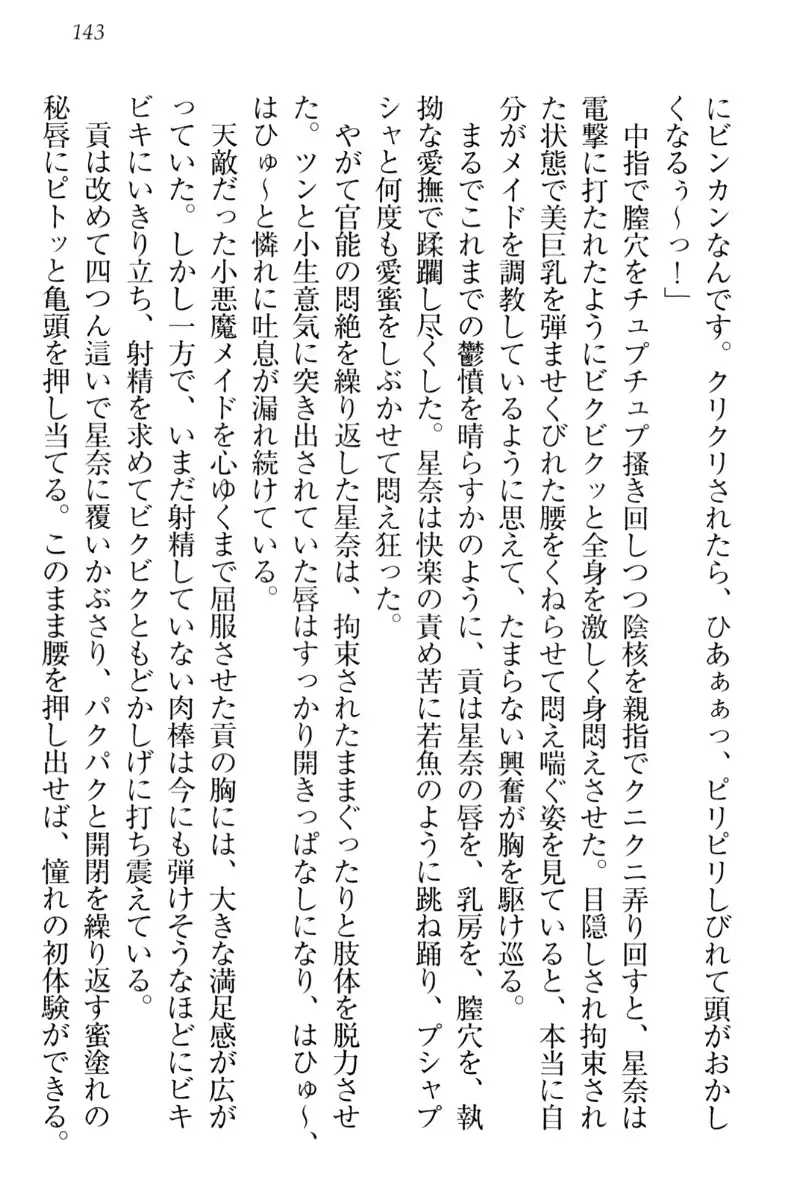 143
にビンカンなんです。クリクリされたら、ひあぁぁっ、ピリピリしびれて頭がおかし
くなるぅ〜っ！」
　中指で膣穴をチュプチュプ掻き回しつつ陰核を親指でクニクニ弄り回すと、星奈は
電撃に打たれたようにビクビクッと全身を激しく身悶えさせた。目隠しされ拘束され
た状態で美巨乳を弾ませくびれた腰をくねらせて悶え喘ぐ姿を見ていると、本当に自
分がメイドを調教しているように思えて、たまらない興奮が胸を駆け巡る。
　まるでこれまでの鬱憤を晴らすかのように、貢は星奈の唇を、乳房を、膣穴を、執
拗な愛撫で蹂躙し尽くした。星奈は快楽の責め苦に若魚のように跳ね踊り、プシャプ
シャと何度も愛蜜をしぶかせて悶え狂った。
　やがて官能の悶絶を繰り返した星奈は、拘束されたままぐったりと肢体を脱力させ
た。ツンと小生意気に突き出されていた唇はすっかり開きっぱなしになり、はひゅ〜、
はひゅ〜と憐れに吐息が漏れ続けている。
　天敵だった小悪魔メイドを心ゆくまで屈服させた貢の胸には、大きな満足感が広が
っていた。しかし一方で、いまだ射精していない肉棒は今にも弾けそうなほどにビキ
ビキにいきり立ち、射精を求めてビクビクともどかしげに打ち震えている。
　貢は改めて四つん這いで星奈に覆いかぶさり、パクパクと開閉を繰り返す蜜塗れの
秘唇にピトッと亀頭を押し当てる。このまま腰を押し出せば、憧れの初体験ができる。